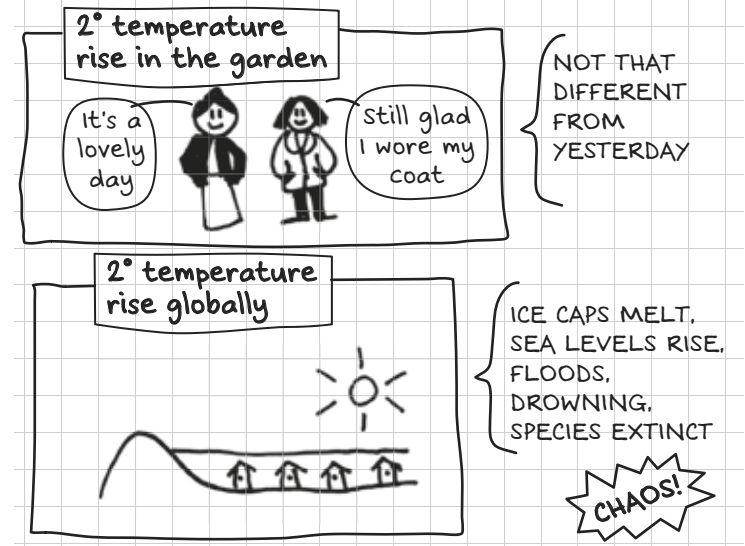 2° temperature
rise in the garden
It's a
lovely
day
Still glad
I wore my
coat
NOT THAT
DIFFERENT
FROM
YESTERDAY
2° temperature
rise globally
ICE CAPS MELT,
SEA LEVELS RISE,
FLOODS,
DROWNING,
SPECIES EXTINCT
CHAOS!